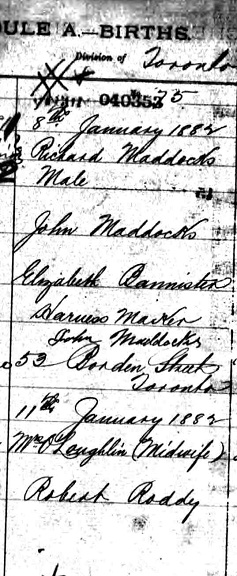 ULE A.—BIRTHS.
Division of Toronto
040353 75
8th January 1882
Richard Maddocks
Male
John Maddocks
Elizabeth Bannister
Harness Maker
John Maddocks
53 Borden Street
Toronto
11th January 1882
Loughlin (Midwife)
Robert Roddy